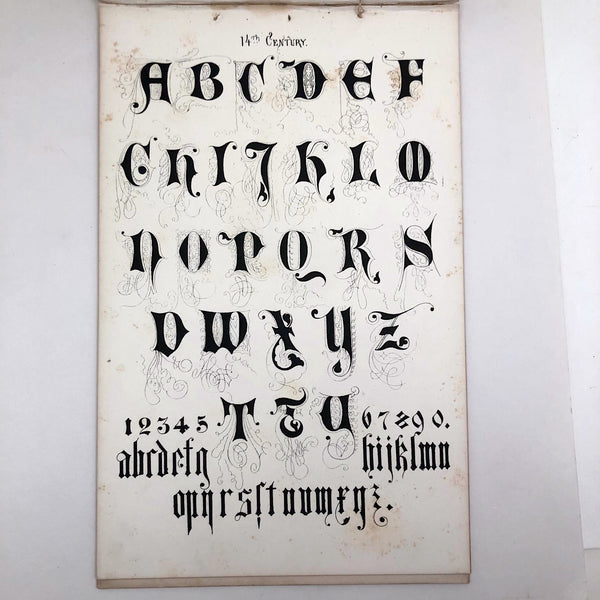 14TH CENTURY.
A B C D E F
G H I J K L M
N O P Q R S
V W X Y Z
T & U
1 2 3 4 5 6 7 8 9 0.
abcdefg hijklmn
opqrsſtuvwxyz.